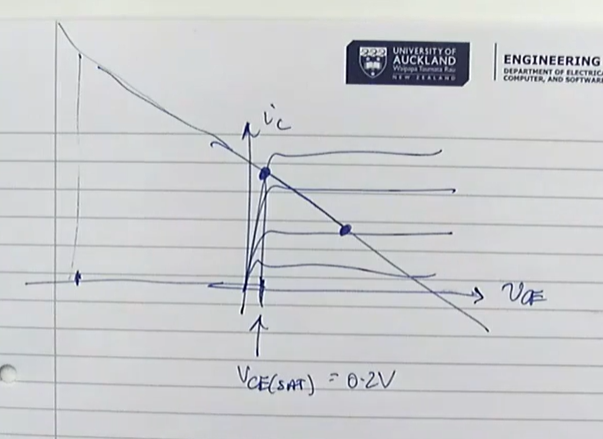 UNIVERSITY OF
AUCKLAND
Waipapa Taumata Rau
NEW ZEALAND
ENGINEERING
DEPARTMENT OF ELECTRICA
COMPUTER, AND SOFTWAR
ic
VCE
VCE(SAT) = 0.2V